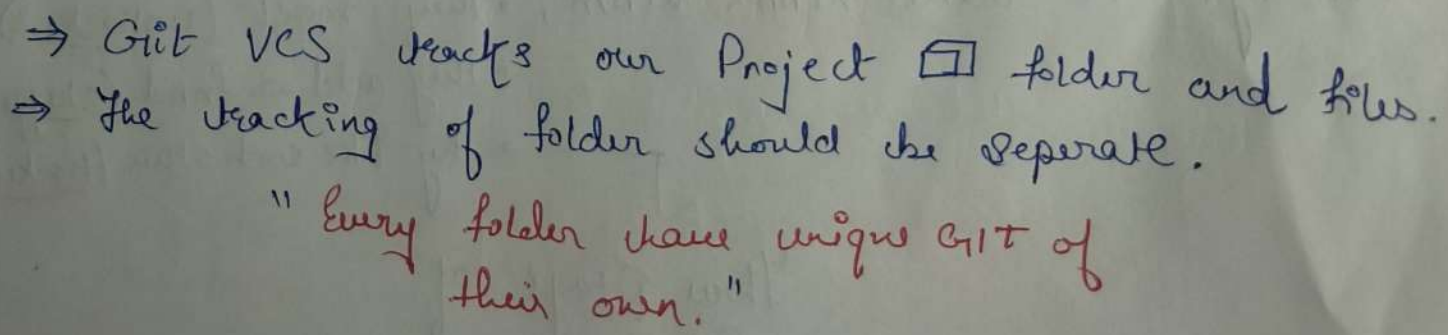 ⇒ Git VCS tracks our Project folder and files.
⇒ The tracking of folder should be seperate.
" Every folder have unique GIT of
their own."